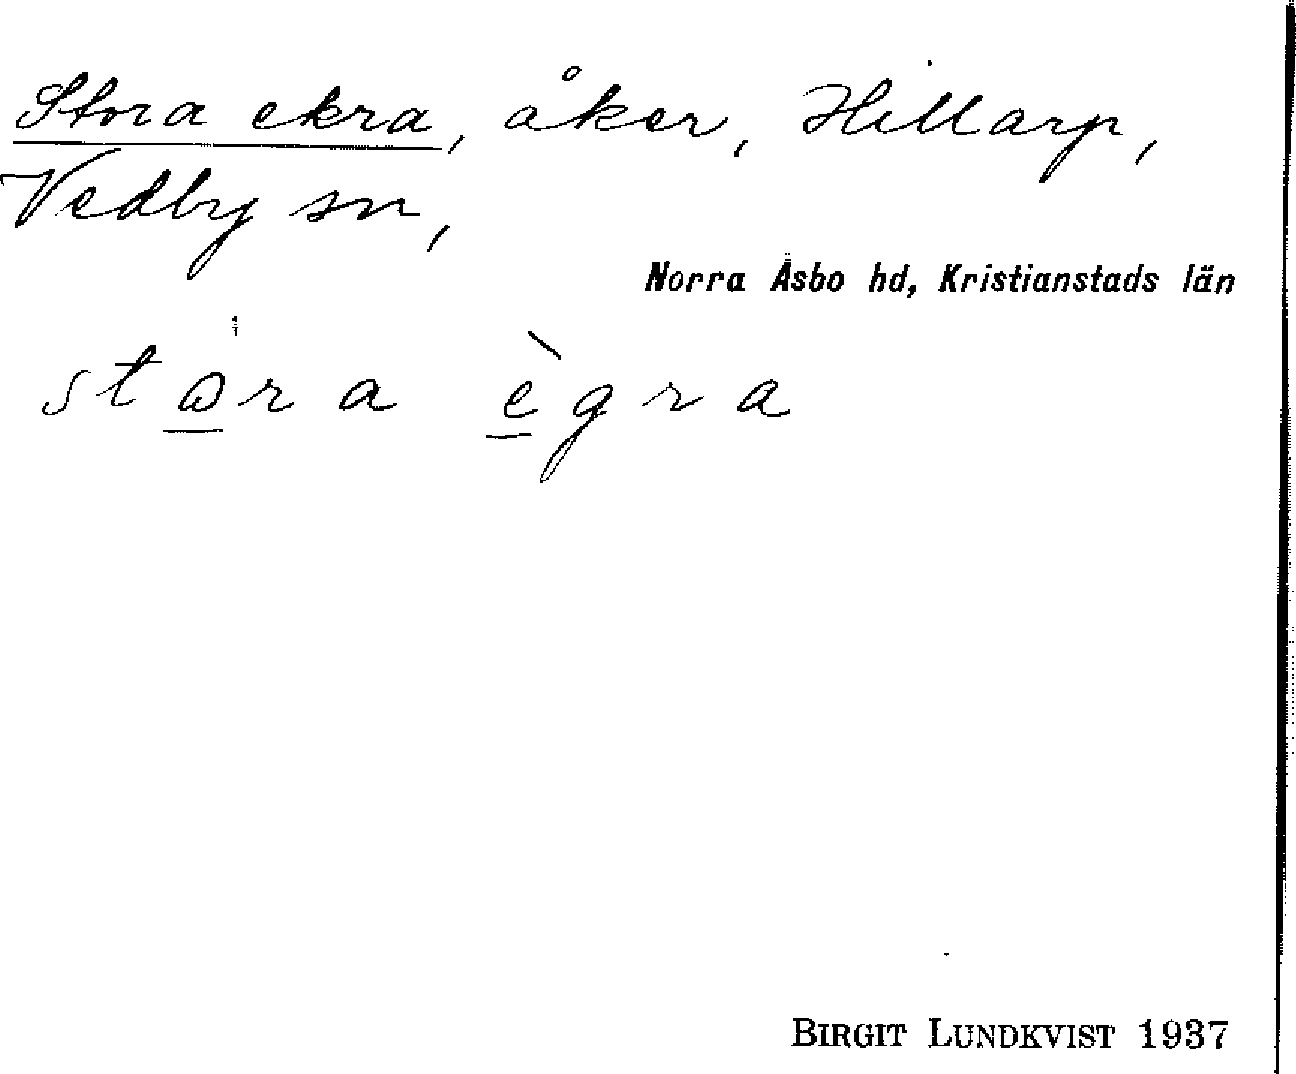 Stora ekra, åker, Hillarp,
Vedby sn,
Norra Åsbo hd, Kristianstads län
stɷ̲ra è̲gra
BIRGIT LUNDKVIST 1937